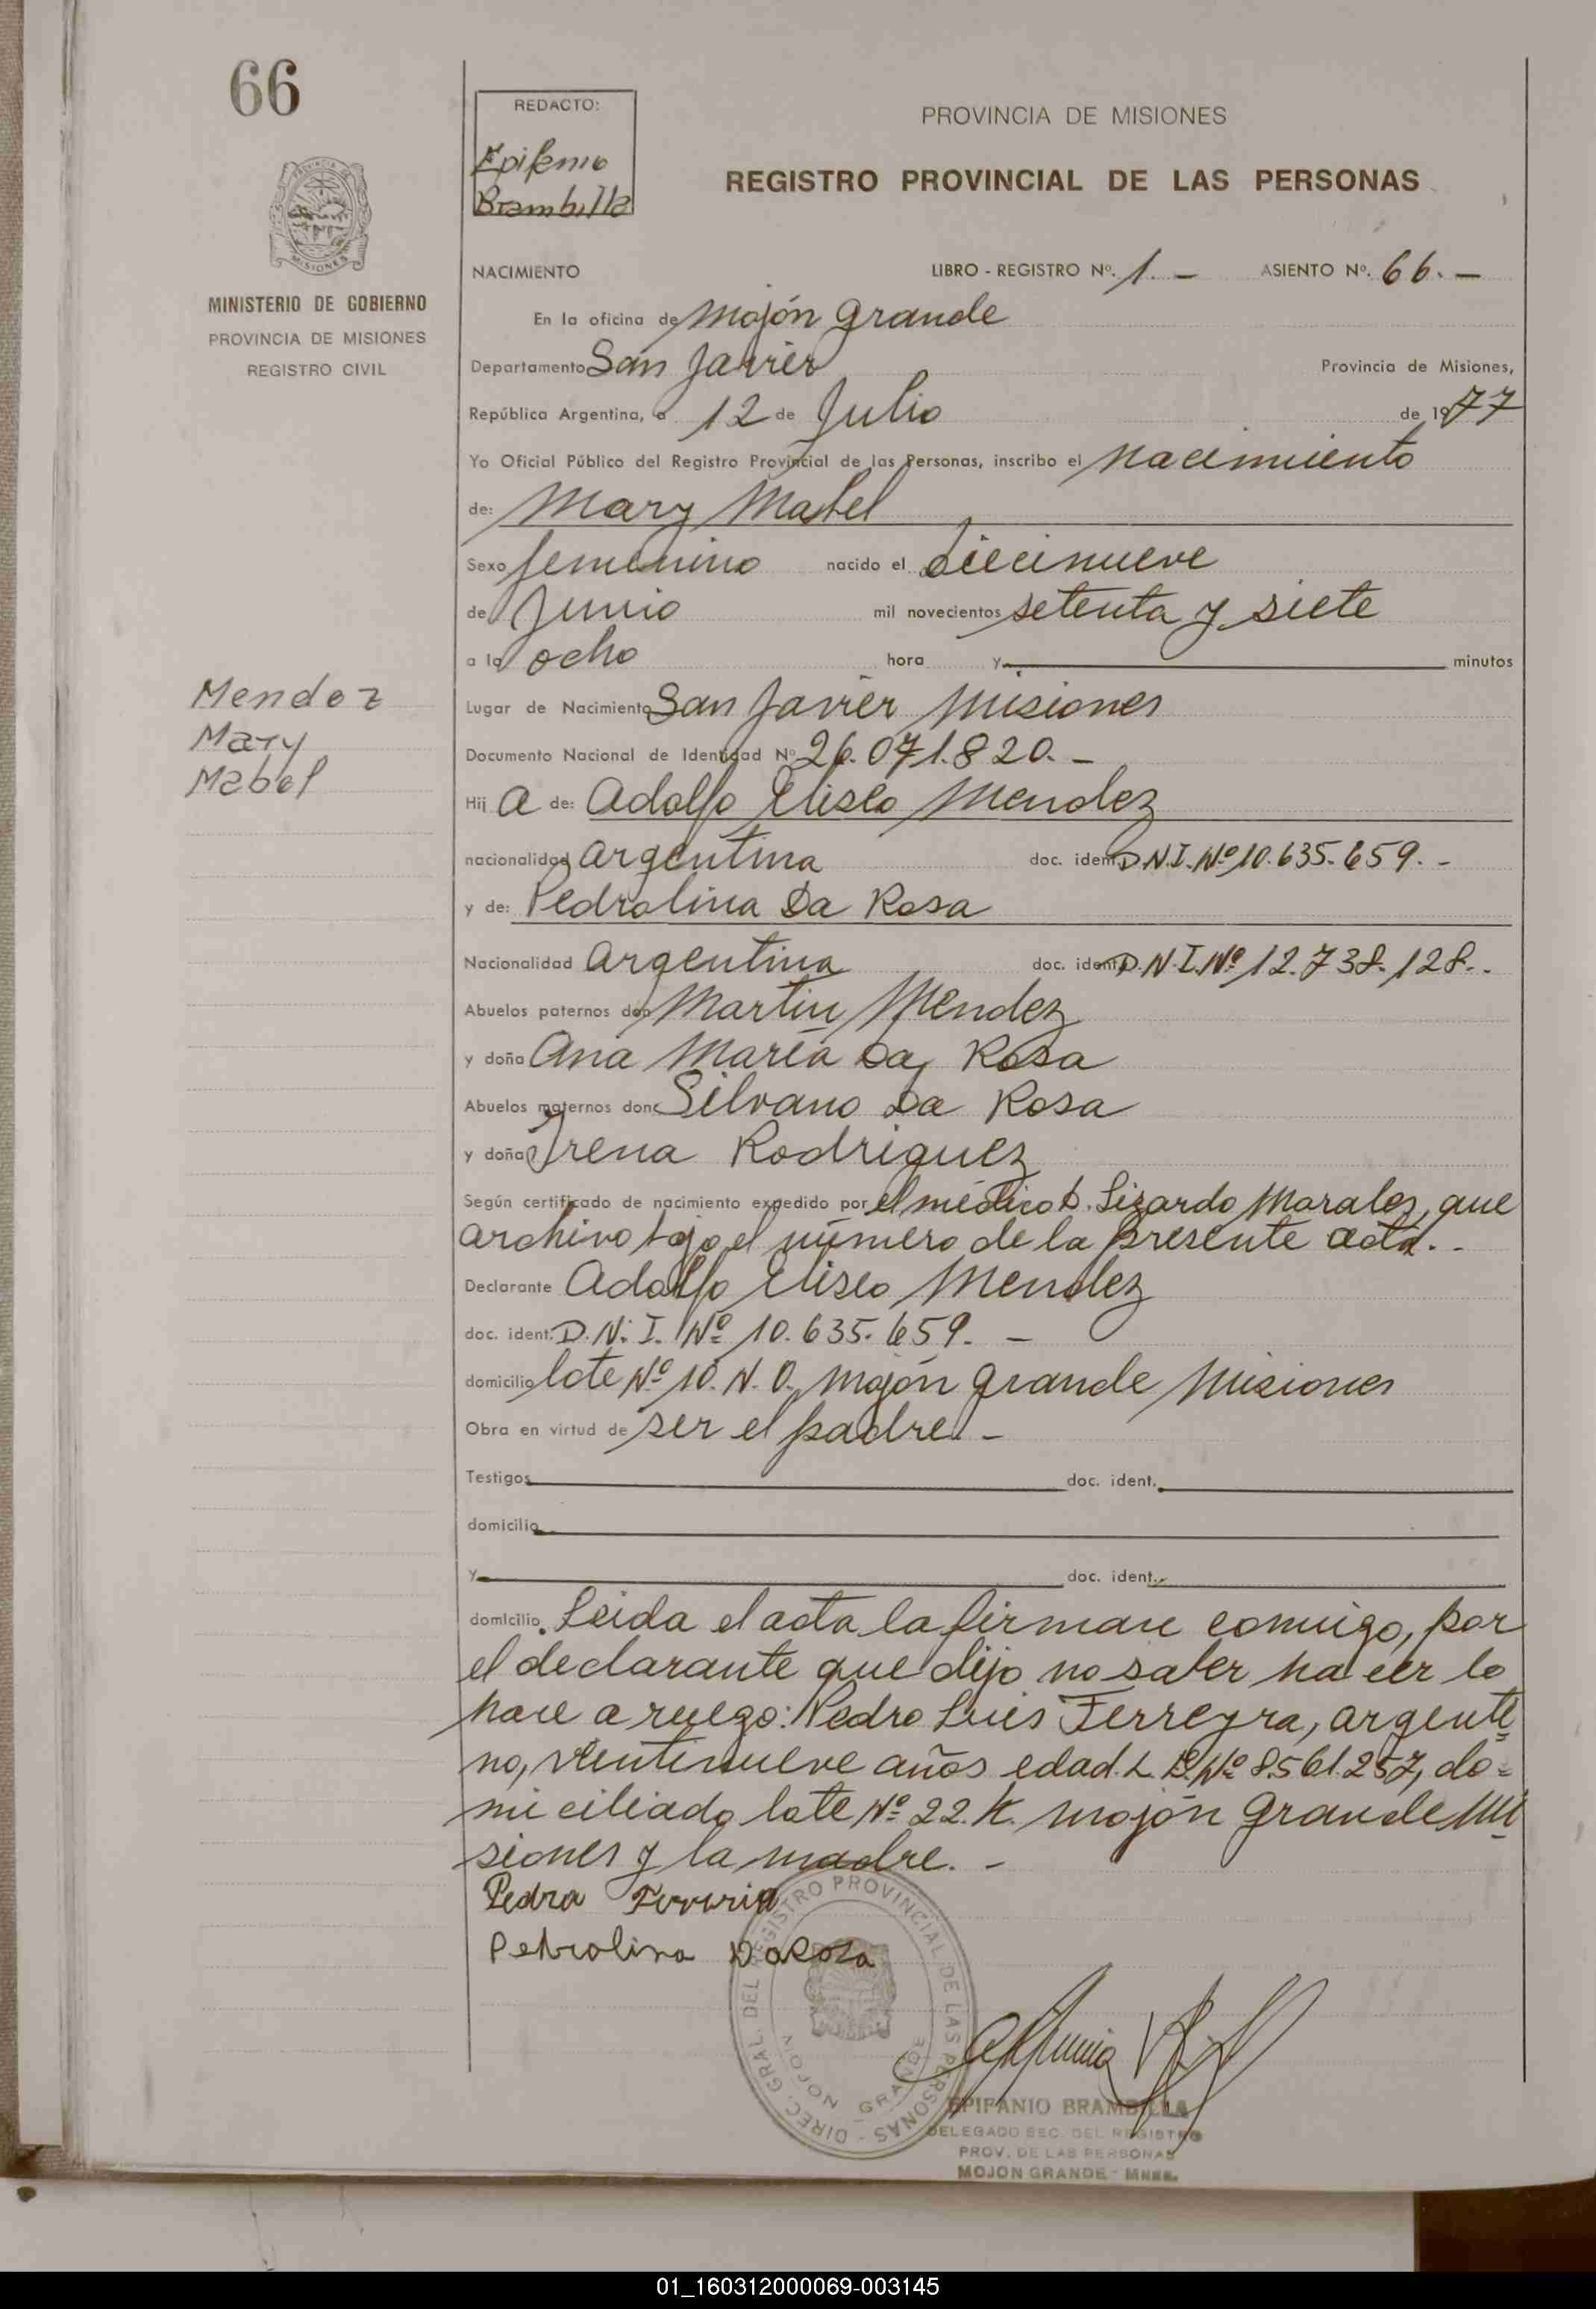 66
REDACTO:
Epifanio
Brambilla
PROVINCIA DE MISIONES
REGISTRO PROVINCIAL DE LAS PERSONAS
MISIONES
MINISTERIO DE GOBIERNO
PROVINCIA DE MISIONES
REGISTRO CIVIL
NACIMIENTO LIBRO - REGISTRO Nº. 1. - ASIENTO Nº. 66. -
En la oficina de Mojón Grande
Departamento San Javier Provincia de Misiones,
República Argentina, a 12 de Julio de 1977
Yo Oficial Público del Registro Provincial de las Personas, inscribo el nacimiento
de: Mary Mabel
Sexo femenino nacido el diecinueve
de Junio mil novecientos setenta y siete
a la ocho hora y minutos
Mendez
Mary
Mabel
Lugar de Nacimiento San Javier Misiones
Documento Nacional de Identidad Nº 26.071.820. -
Hij a de: Adolfo Eliseo Mendez
nacionalidad argentina doc. ident. D.N.I. Nº 10.635.659. -
y de: Pedrolina Da Rosa
Nacionalidad argentina doc. ident. D.N.I. Nº 12.738.128. .
Abuelos paternos don Martin Mendez
y doña Ana María Da Rosa
Abuelos maternos don Silvano Da Rosa
y doña Irena Rodriguez
Según certificado de nacimiento expedido por el médico D. Lizardo Morales, que
archivo bajo el número de la presente acta. -
Declarante Adolfo Eliseo Mendez
doc. ident. D.N.I. Nº 10.635.659. -
domicilio lote Nº 10. N. O. Mojón Grande Misiones
Obra en virtud de ser el padre. -
Testigos doc. ident.
domicilio
y doc. ident.
domicilio. Leida el acta la firman conmigo, por
el declarante que dijo no saber hacer lo
hace a ruego: Pedro Luis Ferreyra, argenti
no, veintinueve años edad. L.E. Nº 8.561.257, do=
miciliado lote Nº 22. K. Mojón Grande Mi
siones y la madre. -
Pedro
Petrolina DaRosa
DIREC. GRAL. DEL REGISTRO PROVINCIAL DE LAS PERSONAS -
MOJON GRANDE
EPIFANIO BRAMBILLA
DELEGADO SEC. DEL REGISTRO
PROV. DE LAS PERSONAS
MOJON GRANDE - MNES.
01_160312000069-003145